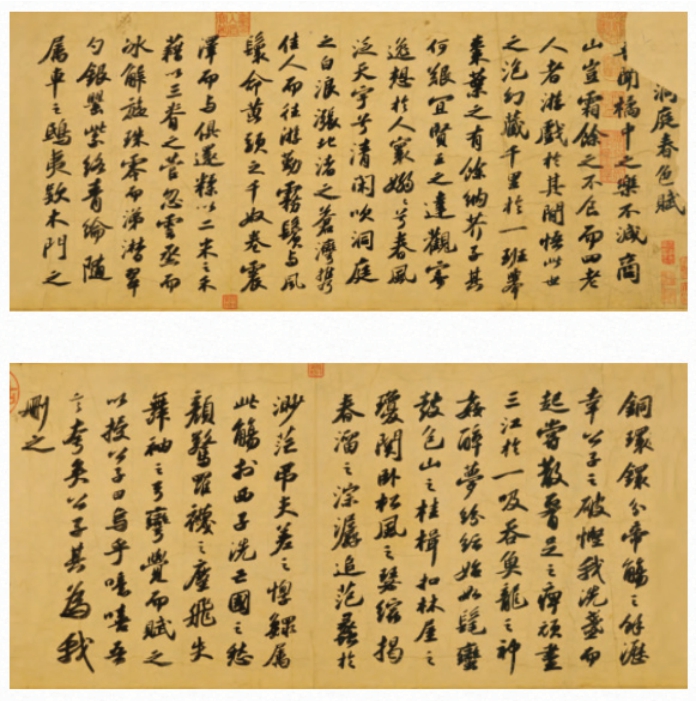 洞庭春色賦
聞橘中之樂不減商
山豈霜餘之不食而四老
人者游戲於其間悟此世
之泡幻藏千里於一班舉
棗葉之有餘納芥子其
何艱宜賢王之達觀寄
逸想於人寰嫋嫋兮春風
泛天宇兮清閑吹洞庭
之白浪漲北渚之蒼灣攜
佳人而往游勤霧鬢與風
鬟命黃頭之千奴卷震
澤而與俱還糅以二米之禾
藉以三脊之菅忽雲烝而
冰解旋珠零而涕潸翠
勺銀罌紫絡青綸隨
屬車之鴟夷款木門之
銅環鐶分帝觴之餘瀝
幸公子之破慳我洗盞而
起嘗散腰足之痺頑盡
三江於一吸吞魚龍之神
姦醉夢紛紜始如髦蠻
鼓包山之桂楫扣林屋之
瓊關臥松風之瑟縮揭
春溜之淙潺追范蠡於
渺茫吊夫差之惸鰥屬
此觴於西子洗亡國之愁
顏驚羅襪之塵飛失
舞袖之弓彎覺而賦之
以授公子曰烏乎噫嘻吾
言夸矣公子其為我
刪之